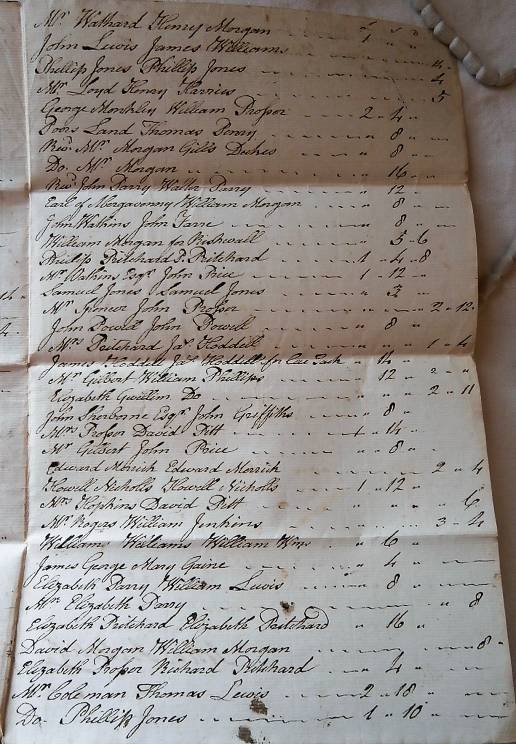 Mr Wathard Henry Morgan 1 " "
John Lewis James Williams
Phillip Jones Phillip Jones 4
Mr Loyd Henry Harries 5
George Morthley William Prosser 2 " 4 "
Poors Land Thomas Parry " 8 "
Revd Mr Morgan Giles " 8 "
Do Mr Morgan " 16 "
Revd John Parry Walter Parry " 12 "
Earl of Abergavenny William Morgan " 8 "
John Watkins John " 8 "
William Morgan for " 5 " 6
Phillip Pritchard P Pritchard 1 " 4 " 8
Mr Watkins Esqr John Price 1 " 12 "
Samuel Jones Samuel Jones " 3 "
Mr Spencer John Prosser " 2 " 12
John Powell John Powell " 8 "
Mrs Pritchard Jas Hoddell " 1 " 4
James Hoddell Jas Hoddell for " 14 "
Mr Gilbert William Phillips 12 " 2 "
Elizabeth Gwillim Do " 2 " 11
John Sherborne Esqr John Griffiths " 8 "
Mrs Prosser David Pitt 1 " 14 "
Mr Gilbert John Price " 8 "
Edward Merrick Edward Merrick 2 " 4
Howell Nicholls Howell Nicholls 1 " 12 "
Mrs Hopkins David Pitt " 6
Mr Rogers William Jenkins 3 " 4
William Williams William Wms " 6 "
James George Mary Gaine " 4 "
Elizabeth Parry William Lewis " 8 "
Mrs Elizabeth Parry " 8
Elizabeth Pritchard Elizabeth Pritchard " 16 "
David Morgan William Morgan " 8 "
Elizabeth Prosser Richard Pritchard " 4 "
Mr Coleman Thomas Lewis 2 " 18 "
Do Phillip Jones 1 " 10 "